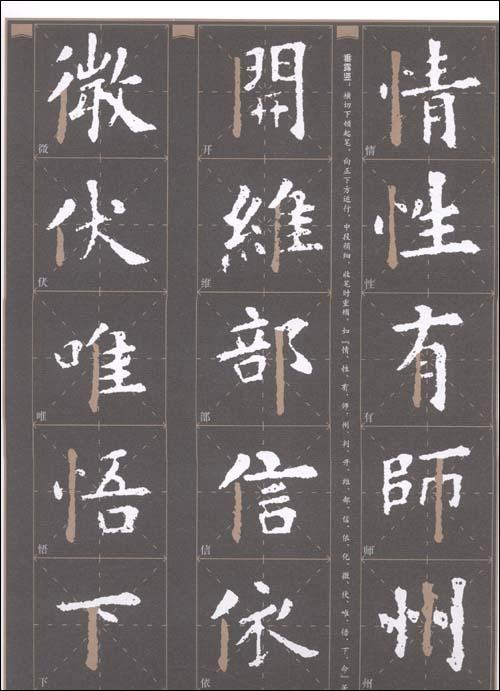 情
情
性
性
有
有
師
师
州
州
垂露竖：横切下顿起笔，向正下方运行，中段稍细，收笔时重顿。如『情、性、有、师、州、列、开、维、部、信、依、化、微、伏、唯、悟、下、命』
開
开
維
维
部
部
信
信
依
依
微
微
伏
伏
唯
唯
悟
悟
下
下